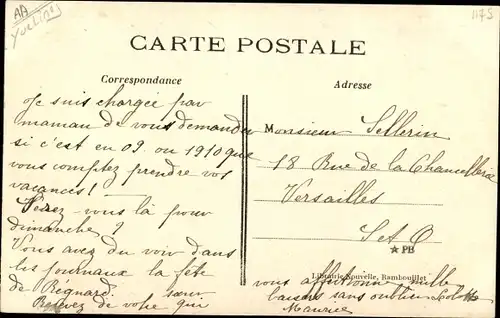 AA
Yvelines
1175
CARTE POSTALE
Correspondance
Adresse
Je suis chargée par
maman de vous demander
si c'est en 09 ou 1910 que
vous comptez prendre vos
vacances !
Serez-vous là pour
dimanche ?
Vous avez du voir dans
les journaux la fête
de Régnard. sœur
Recevez de votre qui
Monsieur Sellerin
18 Rue de la Chancellerie
Versailles
S et O
★ PB
Librairie Nouvelle, Rambouillet
vous affectionne mille
baisers sans oublier
Maurice